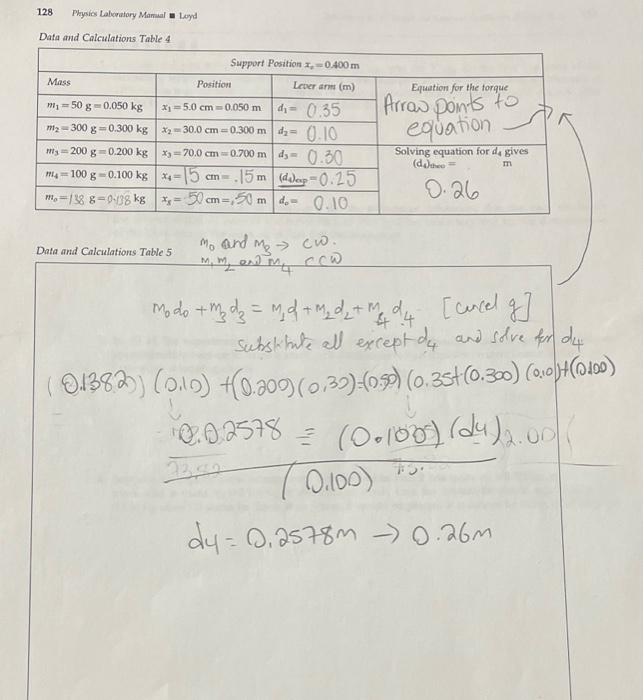 128 Physics Laboratory Manual ■ Loyd
Data and Calculations Table 4
Support Position xₛ = 0.400 m
Mass Position Lever arm (m) Equation for the torque
m₁ = 50 g = 0.050 kg x₁ = 5.0 cm = 0.050 m d₁ = 0.35 Arrow points to
m₂ = 300 g = 0.300 kg x₂ = 30.0 cm = 0.300 m d₂ = 0.10 equation
m₃ = 200 g = 0.200 kg x₃ = 70.0 cm = 0.700 m d₃ = 0.30 Solving equation for d₄ gives
m₄ = 100 g = 0.100 kg x₄ = 15 cm = .15 m (d₄)exp = 0.25 (d₄)theo = m
0.26
m₀ = 138 g = 0.138 kg x_g = 50 cm = .50 m d₀ = 0.10
Data and Calculations Table 5
m₀ and m₃ → cw.
m₁ m₂ and m₄ ccw
m₀d₀ + m₃d₃ = m₁d + m₂d₂ + m₄d₄ [cancel g]
substitute all except d₄ and solve for d₄
(0.1382) (0.10) + (0.200) (0.30) = (0.50) (0.35 + (0.300) (0.10) + (0.100)
0.02578 = (0.100) (d4)
(0.100)
d4 = 0.2578m → 0.26m